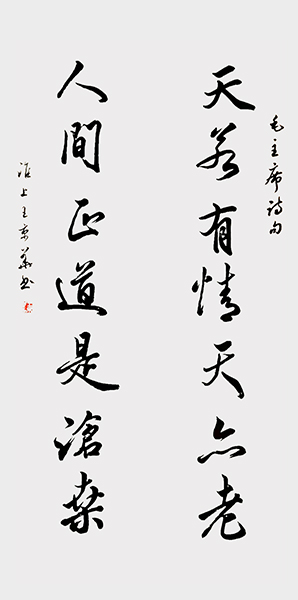 毛主席诗句
天若有情天亦老
人間正道是滄桑
淮上王京華书